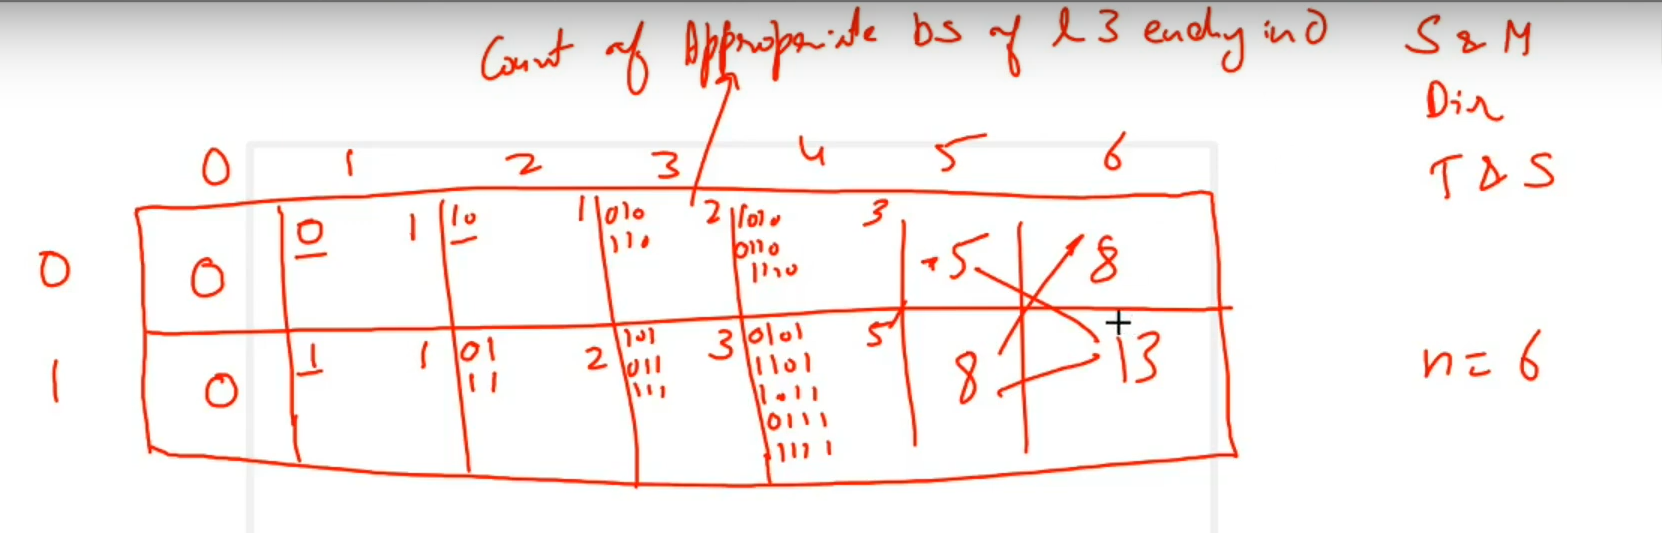 Count of Appropriate bs of l 3 ending in 0
S & M
Dir
T & S
0 1 2 3 4 5 6
0 0 0 1 10 1 010 2 1010 3 5 8
110 0110
1110
1 0 1 1 01 2 101 3 0101 5 8 13
11 011 1101
111 1011
0111
1111
n = 6